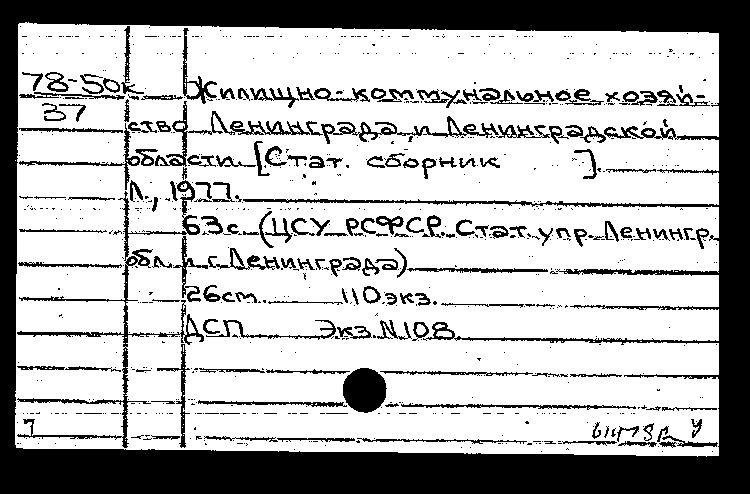 78-50к Жилищно-коммунальное хозяй-
37 ство Ленинграда и Ленинградской
области. [Стат. сборник ].
Л., 1977.
63с (ЦСУ РСФСР. Стат. упр. Ленингр.
обл. и г. Ленинграда)
26см. 110экз.
ДСП Экз.N108
7